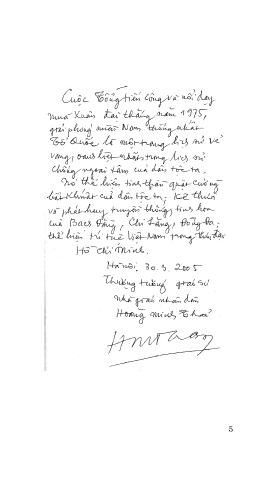 Cuộc Tổng tiến công và nổi dạy
mùa Xuân đại thắng năm 1975,
giải phóng miền Nam thống nhất
Tổ Quốc là một trang lịch sử vẻ
vang, oanh liệt nhất trong lịch sử
chống ngoại xâm của dân tộc ta.
Nó thể hiện tinh thần quật cường
bất khuất của dân tộc ta; kế thừa
và phát huy truyền thống tinh hoa
của Bạch Đằng, Chi Lăng, Đống Đa.
thể hiện trí tuệ Việt Nam trong thời đại
Hồ Chí Minh.
Hà Nội, 30.3.2005
Thượng tướng giáo sư
nhà giáo nhân dân
Hoàng Minh Thảo
5